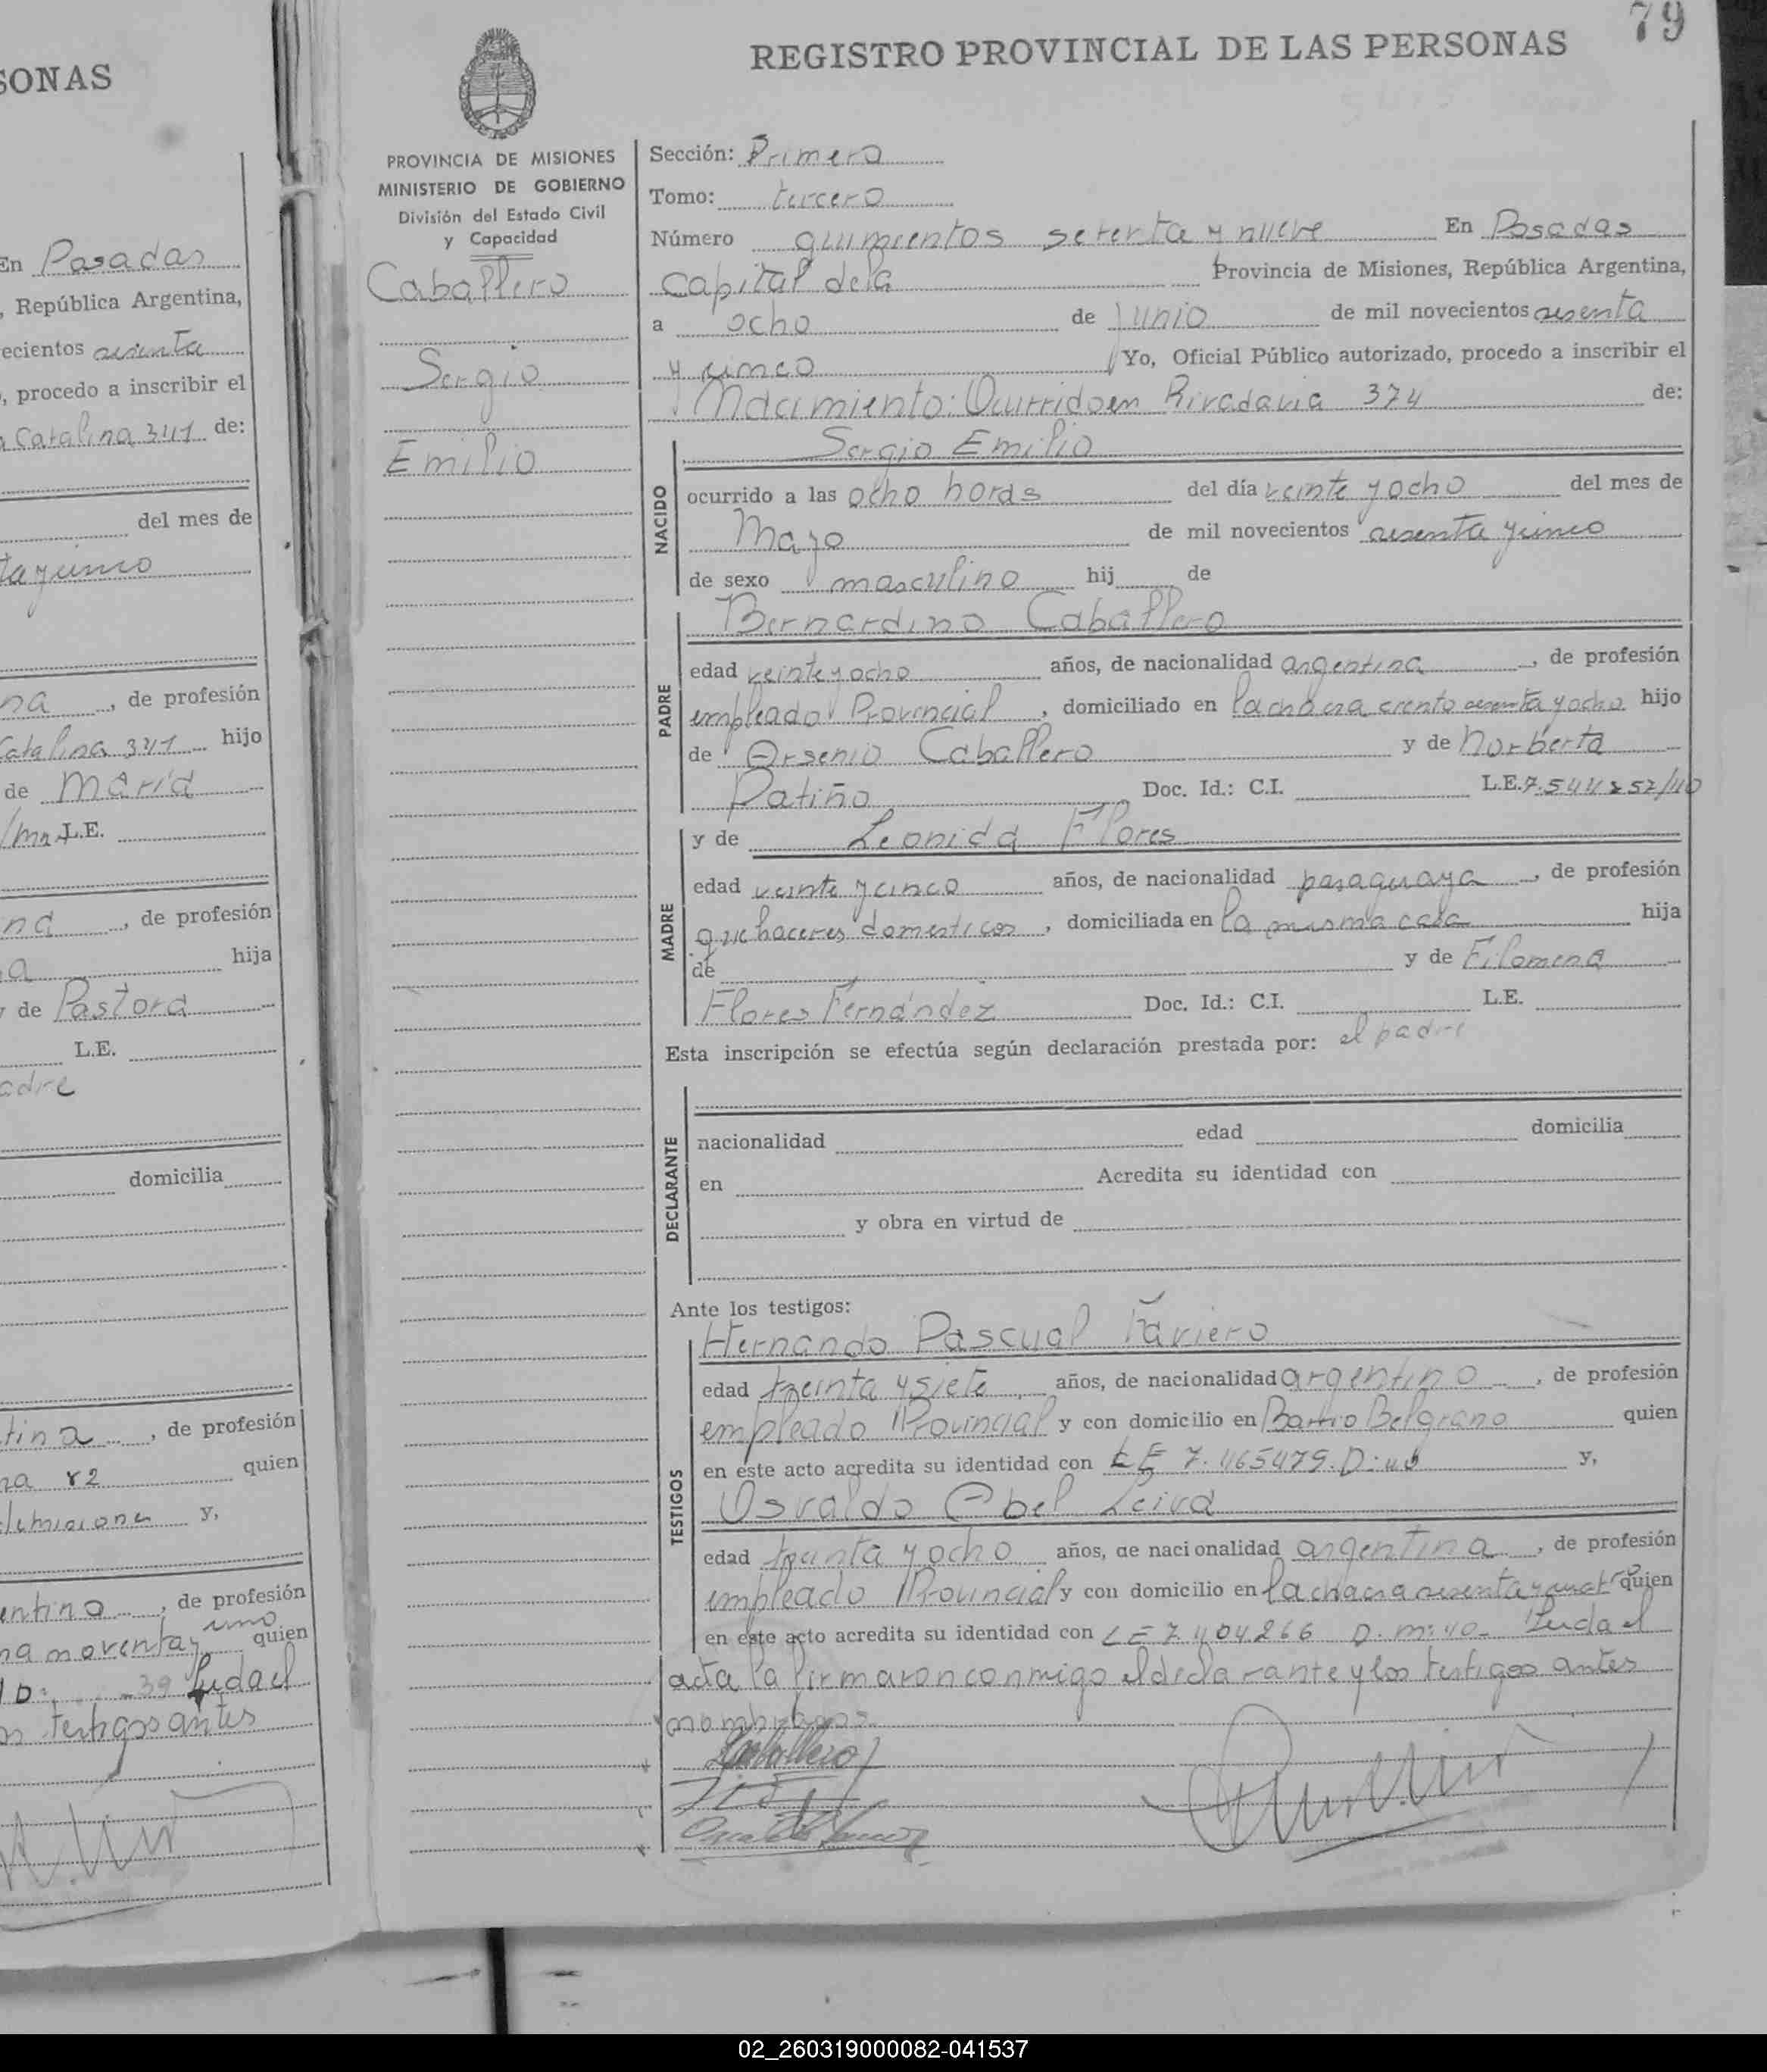 SONAS
En Posadas
, República Argentina,
ecientos sesenta
, procedo a inscribir el
Catalina 341 de:
del mes de
ta y cinco
na, de profesión
Catalina 341 hijo
de María
L.E.
na, de profesión
a hija
y de Pastora
L.E.
adre
domicilia
tina, de profesión
na 82 quien
de misiones y,
entino, de profesión
uno
na noventa y quien
39 Leida el
os testigos antes
79
REGISTRO PROVINCIAL DE LAS PERSONAS
PROVINCIA DE MISIONES
MINISTERIO DE GOBIERNO
División del Estado Civil
y Capacidad
Caballero
Sergio
Emilio
Sección: Primera
Tomo: tercero
Número quinientos setenta y nueve En Posadas
capital de la Provincia de Misiones, República Argentina,
a ocho de Junio de mil novecientos sesenta
y cinco Yo, Oficial Público autorizado, procedo a inscribir el
Nacimiento: Ocurrido en Rivadavia 374 de:
NACIDO
Sergio Emilio
ocurrido a las ocho horas del día veinte y ocho del mes de
Mayo de mil novecientos sesenta y cinco
de sexo masculino hij de
PADRE
Bernardino Caballero
edad veinte y ocho años, de nacionalidad argentina, de profesión
empleado Provincial, domiciliado en la chacra ciento sesenta y ocho hijo
de Arsenio Caballero y de Norberta
Patiño Doc. Id.: C.I. L.E. 7.544.257/40
MADRE
y de Leonida Flores
edad veinte y cinco años, de nacionalidad paraguaya, de profesión
quehaceres domesticos, domiciliada en la misma casa hija
de y de Filomena
Flores Fernández Doc. Id.: C.I. L.E.
Esta inscripción se efectúa según declaración prestada por: el padre
DECLARANTE
nacionalidad edad domicilia
en Acredita su identidad con
y obra en virtud de
Ante los testigos:
TESTIGOS
Hernando Pascual Faviero
edad treinta y siete años, de nacionalidad argentino, de profesión
empleado Provincial y con domicilio en Barrio Belgrano quien
en este acto acredita su identidad con LE 7.465479. D: y,
Osvaldo Abel Leiva
edad treinta y ocho años, de nacionalidad argentina, de profesión
empleado Provincial y con domicilio en la chacra sesenta y cuatro quien
en este acto acredita su identidad con LE 7.404.266 D. m: 40_ Leida el
acta la firmaron conmigo el declarante y los testigos antes
nombrados
Caballero
02_260319000082-041537